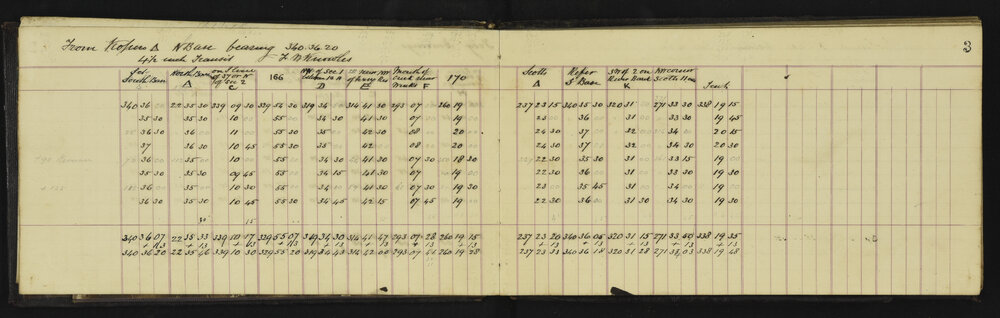 3
From Ropers Δ N Base bearing 340.36.20
4 1/2 inch Transit J. W Knowles
South Base North Base of Sec 2 166 of Sec 1 Mouth of Creek above 170 Scotts Roper S Base 3 W of 2 on River Base NW corner Scotts Tent
Δ C D E F Δ K
340 36 22 35 30 339 09 30 339 54 30 319 34 314 41 30 293 07 260 19 237 23 15 340 35 30 320 31 271 33 30 338 19 15
35 30 35 30 10 55 34 30 41 30 07 19 23 36 31 33 30 19 45
36 30 36 11 55 35 42 30 08 20 24 30 37 32 34 20 15
37 36 30 10 45 55 30 35 42 08 20 24 30 37 32 34 30 20 30
36 35 30 10 55 34 30 41 30 07 30 18 30 22 30 35 30 31 33 15 19
35 30 35 30 09 45 55 34 15 41 30 07 19 22 30 36 31 33 30 19
36 35 10 30 55 30 34 41 30 07 30 19 30 23 35 45 31 34 19
36 30 35 10 45 55 30 34 45 42 15 07 45 19 22 30 36 31 30 34 30 19 30
30 15
340 36 07 22 35 33 339 10 17 339 55 07 319 34 30 314 41 47 293 07 28 260 19 15 237 23 20 340 36 05 320 31 15 271 33 50 338 19 35
+ 13 + 13 + 13 + 13 + 13 + 13 + 13 + 13 + 13 + 13 + 13 + 13 + 13
340 36 20 22 35 46 339 10 30 339 55 20 319 34 43 314 42 00 293 07 41 260 19 28 237 23 33 340 36 18 320 31 28 271 34 03 338 19 48